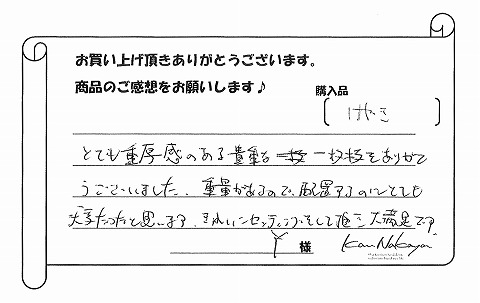 お買い上げ頂きありがとうございます。
商品のご感想をお願いします♪
購入品
〔 けやき 〕
とても重厚感のある貴重な 一枚板をありがと
うございました。重量があるので、配置するのにとても
大変だったと思います。きれいにセッティングをして頂き大満足です
Y 様